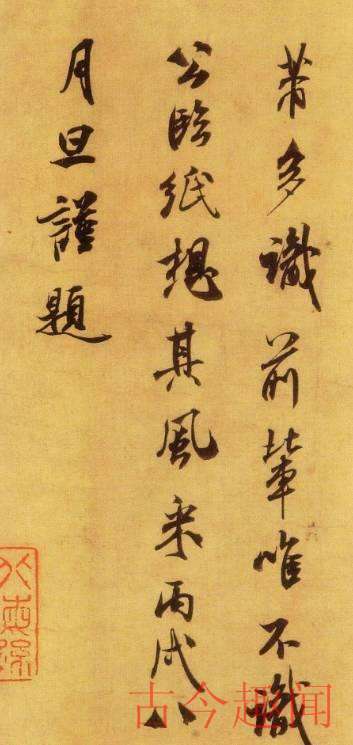 芾多識前輩唯不識
公臨紙想其風采丙戌八
月旦謹題
古今趣闻